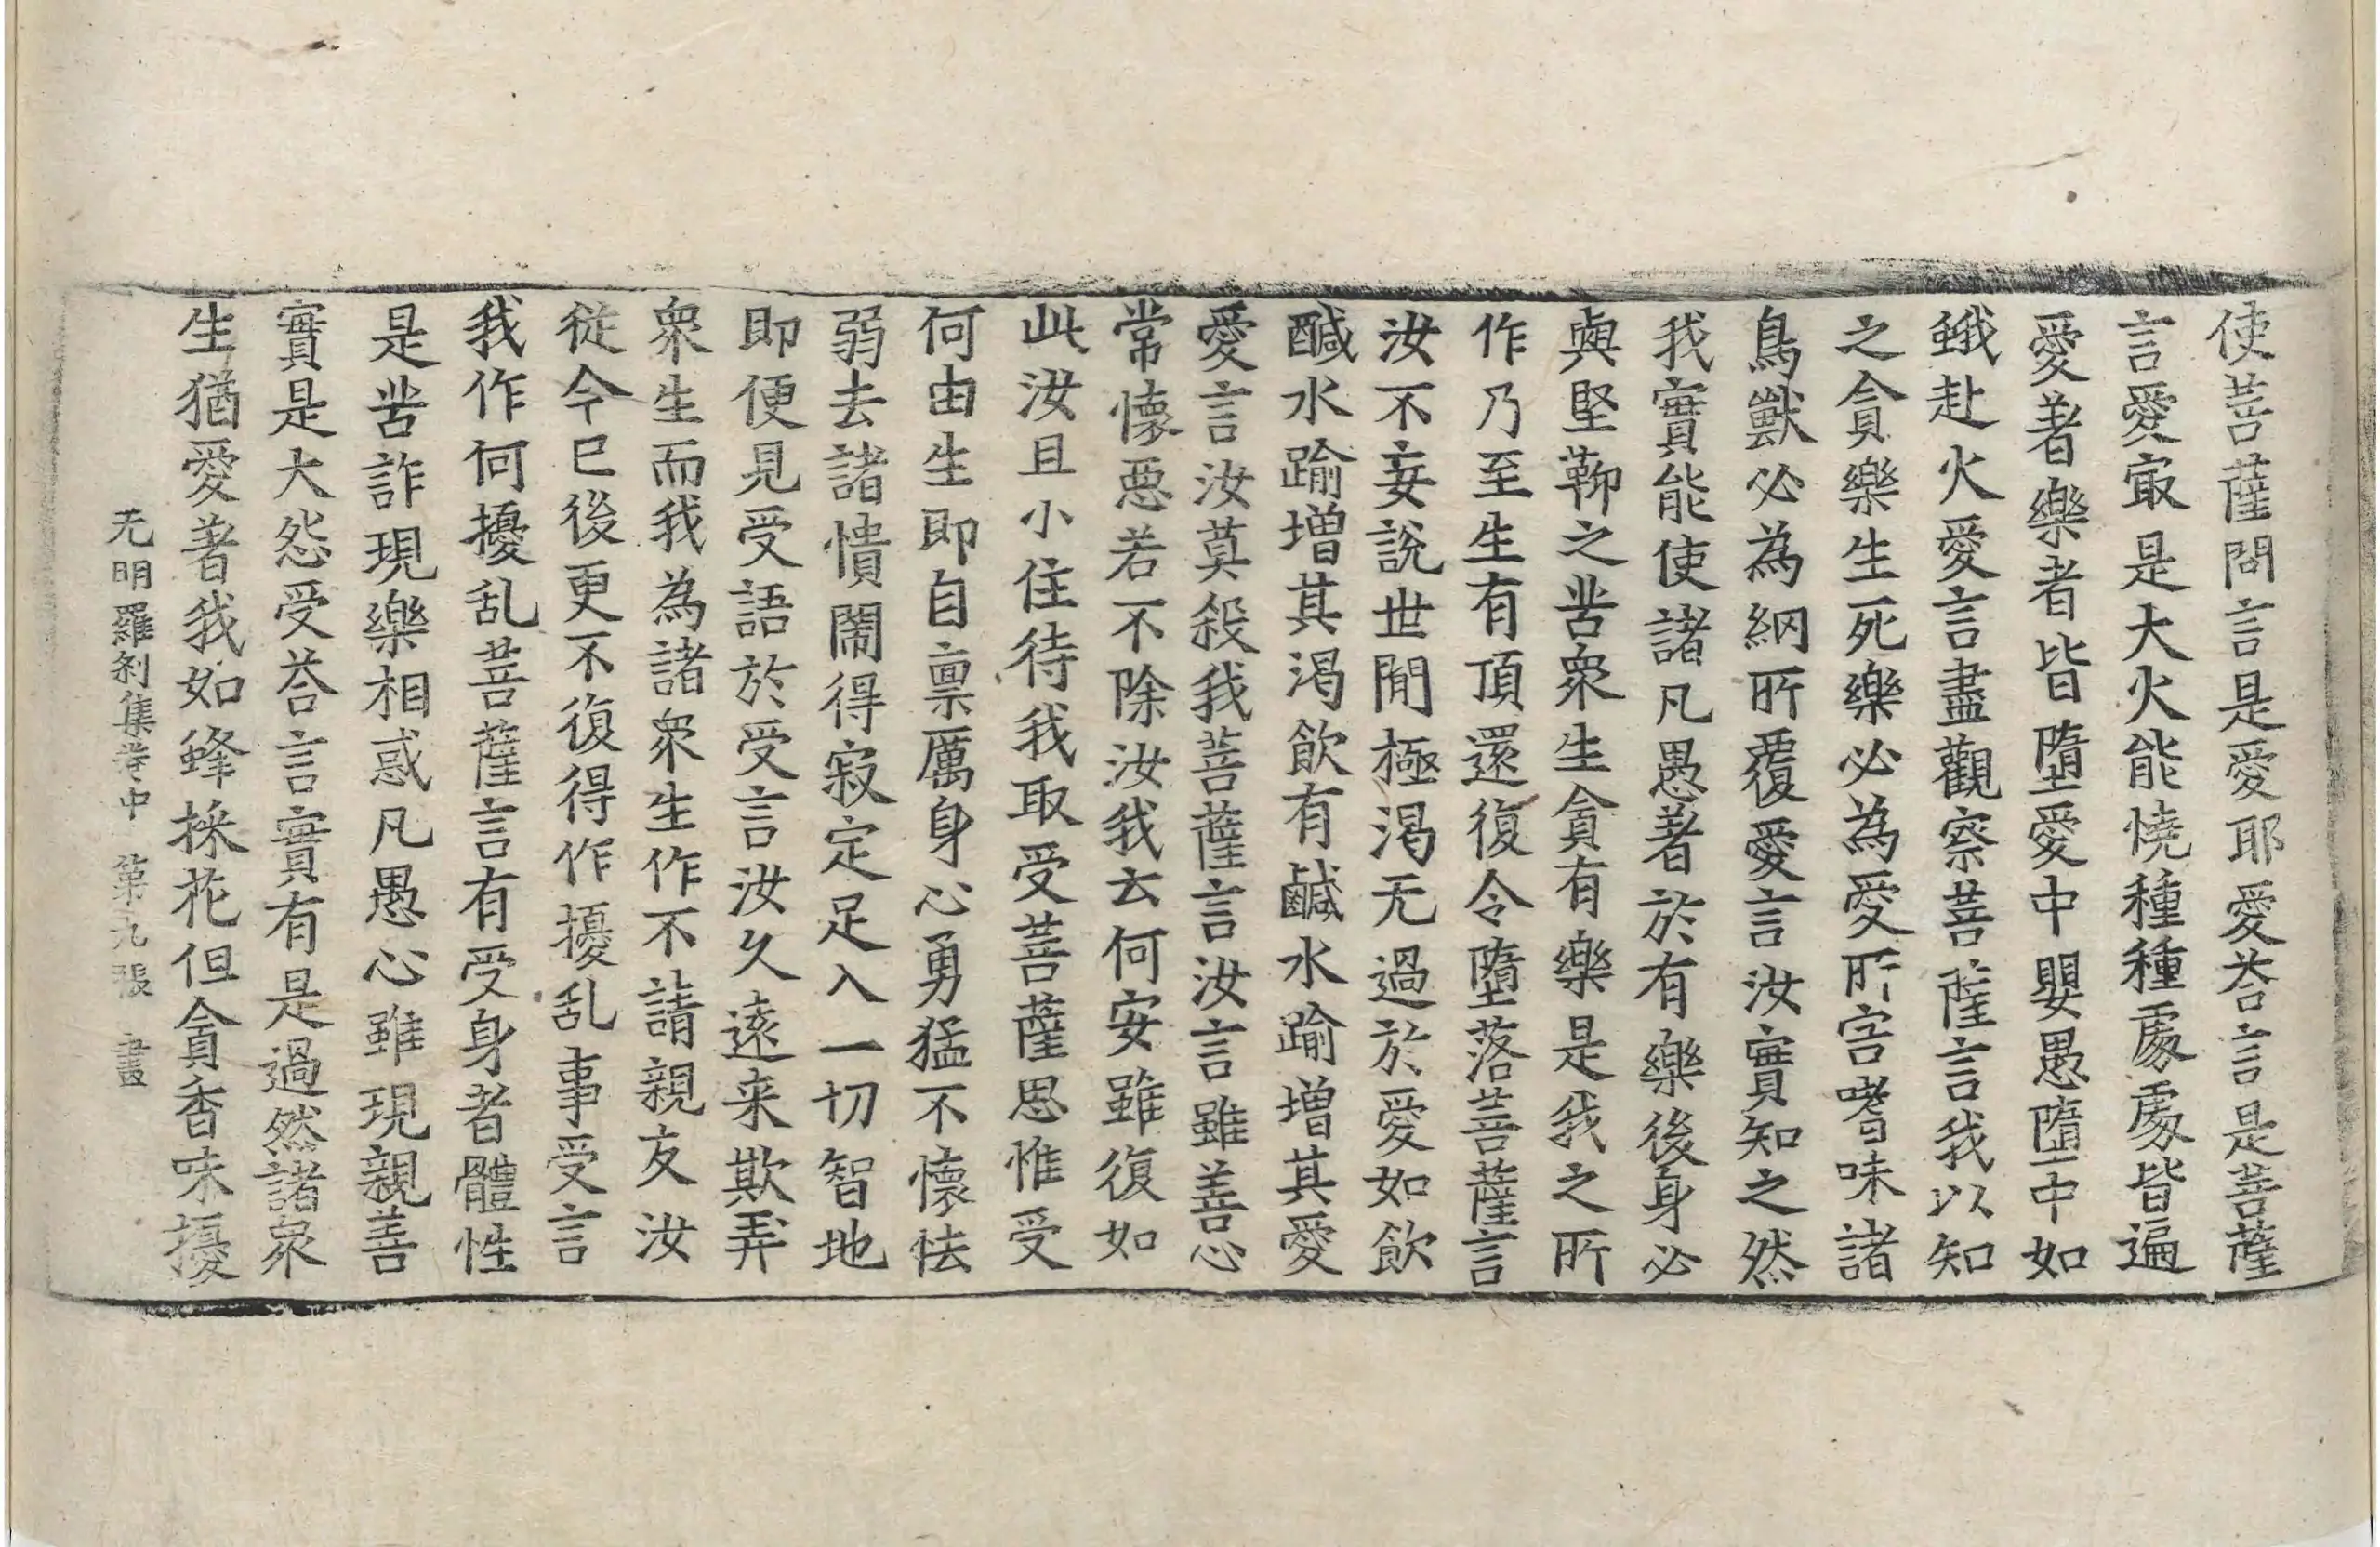 使菩薩問言是愛耶愛荅言是菩薩
言愛㝡是大火能燒種種處處皆遍
愛著樂者皆墮愛中嬰愚墮中如
蛾赴火愛言盡觀察菩薩言我以知
之貪樂生死樂必為愛所害嗜味諸
鳥獸必為網所覆愛言汝實知之然
我實能使諸凡愚著於有樂後身必
與堅鞕之苦衆生貪有樂是我之所
作乃至生有頂還復令墮落菩薩言
汝不妄說世閒極渴无過於愛如飲
醎水踰增其渴飲有鹹水踰增其愛
愛言汝莫殺我菩薩言汝言雖善心
常懷惡若不除汝我去何安雖復如
此汝且小住待我取受菩薩思惟受
何由生即自禀厲身心勇猛不懷怯
弱去諸憒閙得寂定足入一切智地
即便見受語於受言汝久遠来欺弄
衆生而我為諸衆生作不請親友汝
從今已後更不復得作擾乱事受言
我作何擾乱菩薩言有受身者體性
是苦詐現樂相惑凡愚心雖現親善
實是大怨受荅言實有是過然諸衆
生猶愛著我如蜂採花但貪香味擾
无明羅刹集卷中 第九張 書